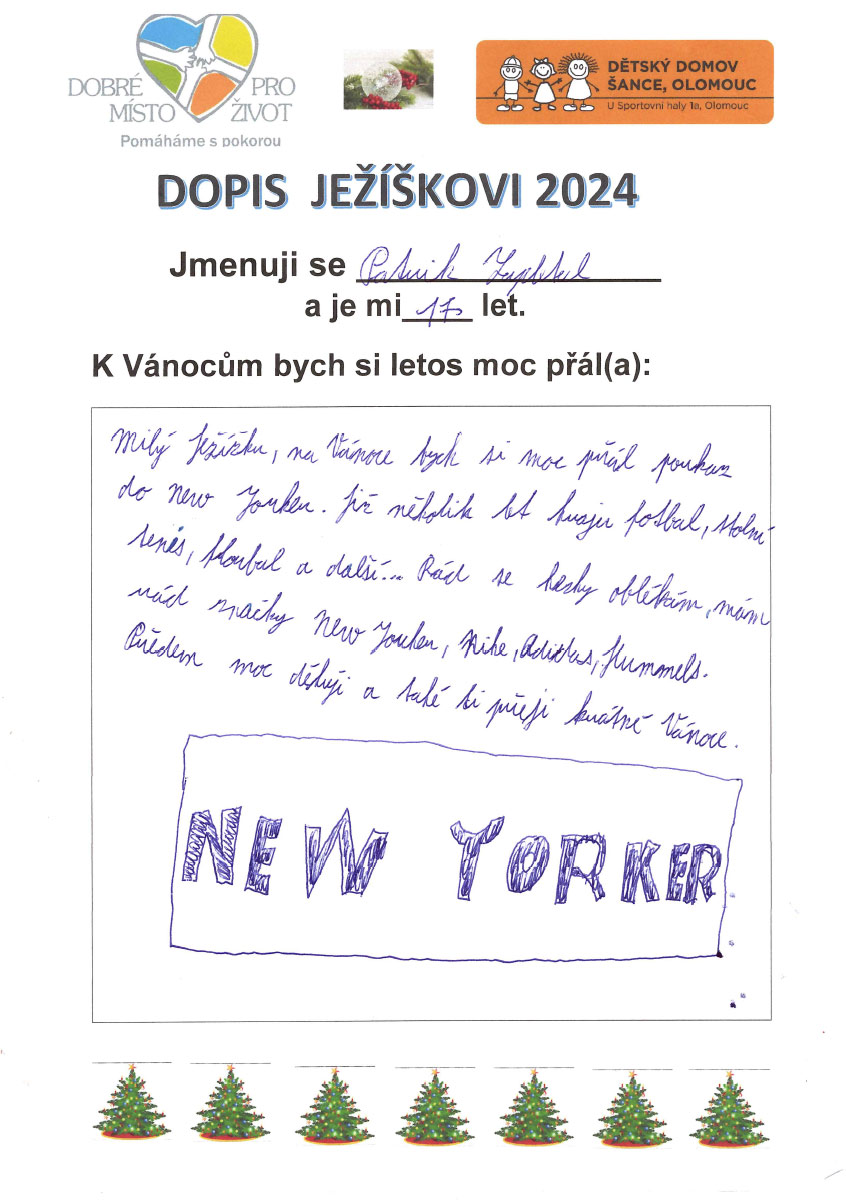 DOBRÉ PRO
MÍSTO ŽIVOT
Pomáháme s pokorou
DĚTSKÝ DOMOV
ŠANCE, OLOMOUC
U Sportovní haly 1a, Olomouc
DOPIS JEŽÍŠKOVI 2024
Jmenuji se Patrik
a je mi 17 let.
K Vánocům bych si letos moc přál(a):
Milý Ježíšku, na Vánoce bych si moc přál poukaz
do New Yorkeru. Již několik let hraju fotbal, stolní
tenis, florbal a další... Rád se hezky oblékám, mám
rád značky New Yorker, Nike, Adidas, Hummels.
Předem moc děkuji a také si přeji krásné Vánoce.
NEW YORKER